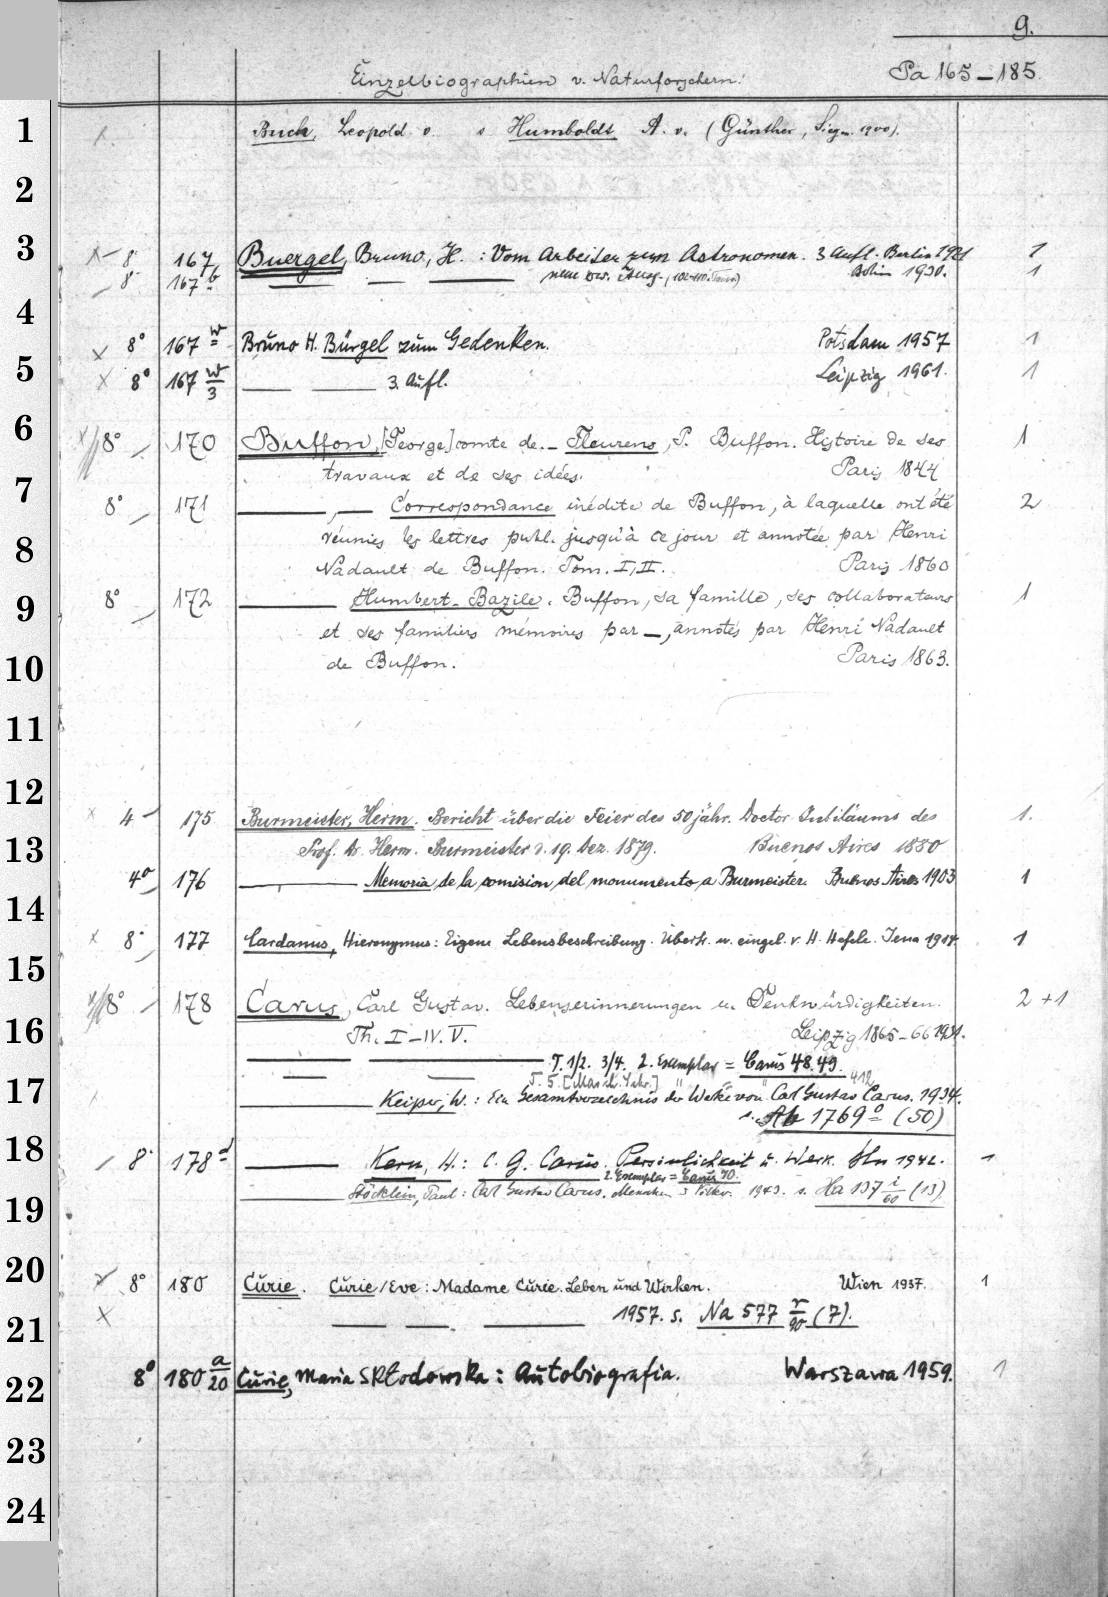 9.
Einzelbiographien v. Naturforschern.
Pa 165-185.
1 Buch, Leopold v. s Humboldt A. v. (Günther, Siegm. 1900).
2
3 8° 167 Buergel, Bruno, H.: Vom Arbeiter zum Astronomen. 3 Aufl. Berlin 1921 1
8° 167 b — — — neue erw. Ausg., Berlin 1930. 1
4
8° 167 w Bruno H. Bürgel zum Gedenken. Potsdam 1957 1
5 8° 167 w/3 — — 3. Aufl. Leipzig 1961. 1
6 8° 170 Buffon, [George] comte de. – Fleurens, P. Buffon. Histoire de ses 1
travaux et de ses idées. Paris 1844
7 8° 171 —,— Correspondance inédite de Buffon, à laquelle ont été 2
8 réunies les lettres publ. jusqu'à ce jour et annotée par Henri
Nadault de Buffon. Tom. I, II. Paris 1860
9 8° 172 — Humbert-Bazile. Buffon, sa famille, ses collaborateurs 1
et ses familiers mémoires par —, annotés par Henri Nadault
10 de Buffon. Paris 1863.
11
12
4° 175 Burmeister, Herm. Bericht über die Feier des 50jähr. Doctor Jubiläums des 1.
13 Prof. Dr. Herm. Burmeister d. 19. Dez. 1879. Buenos Aires 1880
4° 176 — Memoria de la comision del monumento a Burmeister. Buenos Aires 1903 1
14
8° 177 Cardanus, Hieronymus: Eigene Lebensbeschreibung. Übertr. u. eingel. v. H. Hefele. Jena 1914. 1
15
8° 178 Carus, Carl Gustav. Lebenserinnerungen u. Denkwürdigkeiten. 2 + 1
16 Th. I-IV. V. Leipzig 1865-66 1931.
— — T. 1/2. 3/4. 2. Exemplar = Carus 48.49.
— — T. 5. " " " 412
17 — Keiper, W.: Ein Gesamtverzeichnis der Werke von Carl Gustav Carus. 1934.
s. Ab 1769° (50)
18 8° 178 d — Kern, H.: C. G. Carus. Persönlichkeit u. Werk. Bln 1942. 1
2. Exemplar = Carus 70.
19 — Stöcklein, Paul: Carl Gustav Carus. Menschen u. Völker. 1943. s. Ha 137 i/60 (13)
20 8° 180 Curie. Curie, Eve: Madame Curie. Leben und Wirken. Wien 1937. 1
21 — — — 1957. s. Na 577 r/90 (7).
22 8° 180 a/20 Curie, Maria Skłodowska: Autobiografia. Warszawa 1959. 1
23
24